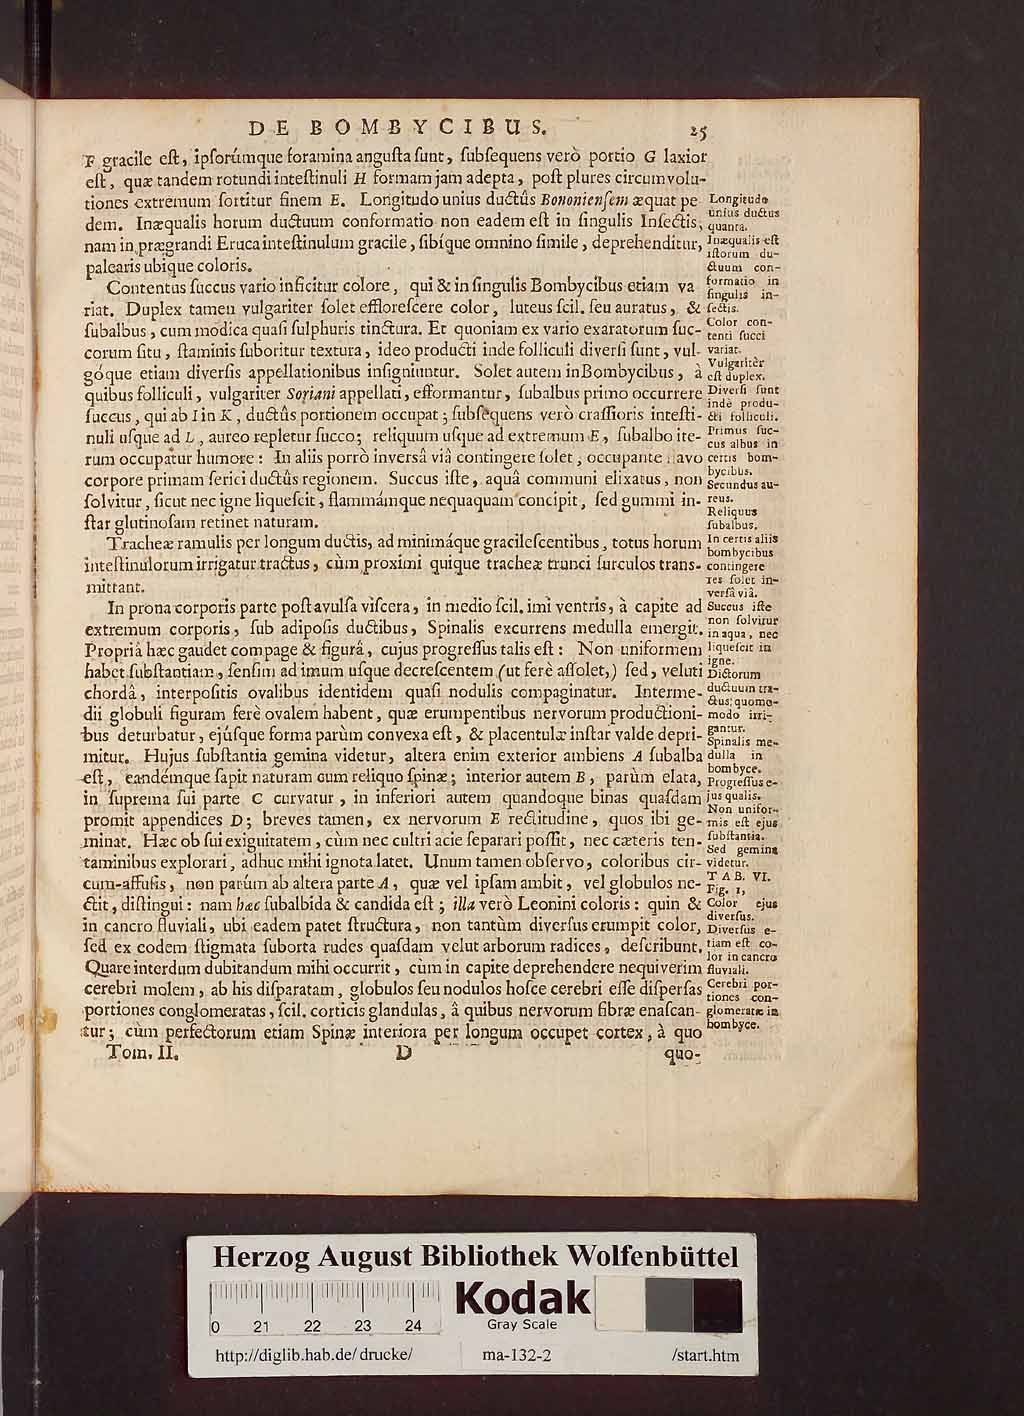 DE BOMBYCIBUS. 25
F gracile eſt, ipſorúmque foramina anguſta ſunt, ſubſequens verò portio G laxior
eſt, quæ tandem rotundi inteſtinuli H formam jam adepta, poſt plures circumvolu-
tiones extremum ſortitur finem E. Longitudo unius ductûs Bononienſem æquat pe
dem. Inæqualis horum ductuum conformatio non eadem eſt in ſingulis Inſectis;
nam in prægrandi Eruca inteſtinulum gracile, ſibíque omnino ſimile, deprehenditur,
palearis ubique coloris.
Contentus ſuccus vario inficitur colore, qui & in ſingulis Bombycibus etiam va
riat. Duplex tamen vulgariter ſolet effloreſcere color, luteus ſcil. ſeu auratus, &
ſubalbus, cum modica quaſi ſulphuris tinctura. Et quoniam ex vario exaratorum ſuc-
corum ſitu, ſtaminis ſuboritur textura, ideo producti inde folliculi diverſi ſunt, vul-
góque etiam diverſis appellationibus inſigniuntur. Solet autem in Bombycibus, à
quibus folliculi, vulgariter Soriani appellati, efformantur, ſubalbus primo occurrere
ſuccus, qui ab I in K, ductûs portionem occupat; ſubſequens verò craſſioris inteſti-
nuli uſque ad L, aureo repletur ſucco; reliquum uſque ad extremum E, ſubalbo ite-
rum occupatur humore: In aliis porrò inversâ viâ contingere ſolet, occupante flavo
corpore primam ſerici ductûs regionem. Succus iſte, aquâ communi elixatus, non
ſolvitur, ſicut nec igne liqueſcit, flammámque nequaquam concipit, ſed gummi in-
ſtar glutinoſam retinet naturam.
Tracheæ ramulis per longum ductis, ad minimáque gracileſcentibus, totus horum
inteſtinulorum irrigatur tractus, cùm proximi quique tracheæ trunci ſurculos trans-
mittant.
In prona corporis parte poſt avulſa viſcera, in medio ſcil. imi ventris, à capite ad
extremum corporis, ſub adipoſis ductibus, Spinalis excurrens medulla emergit.
Propriâ hæc gaudet compage & figurâ, cujus progreſſus talis eſt: Non uniformem
habet ſubſtantiam, ſenſim ad imum uſque decreſcentem (ut ferè aſſolet,) ſed, veluti
chordâ, interpoſitis ovalibus identidem quaſi nodulis compaginatur. Interme-
dii globuli figuram ferè ovalem habent, quæ erumpentibus nervorum productioni-
bus deturbatur, ejúſque forma parùm convexa eſt, & placentulæ inſtar valde depri-
mitur. Hujus ſubſtantia gemina videtur, altera enim exterior ambiens A ſubalba
eſt, eandémque ſapit naturam cum reliquo ſpinæ; interior autem B, parùm elata,
in ſuprema ſui parte C curvatur, in inferiori autem quandoque binas quaſdam
promit appendices D; breves tamen, ex nervorum E rectitudine, quos ibi ge-
minat. Hæc ob ſui exiguitatem, cùm nec cultri acie ſeparari poſſit, nec cæteris ten-
taminibus explorari, adhuc mihi ignota latet. Unum tamen obſervo, coloribus cir-
cum-affuſis, non parùm ab altera parte A, quæ vel ipſam ambit, vel globulos ne-
ctit, diſtingui: nam hæc ſubalbida & candida eſt; illa verò Leonini coloris: quin &
in cancro fluviali, ubi eadem patet ſtructura, non tantùm diverſus erumpit color,
ſed ex eodem ſtigmata ſuborta rudes quaſdam velut arborum radices, deſcribunt.
Quare interdum dubitandum mihi occurrit, cùm in capite deprehendere nequiverim
cerebri molem, ab his diſparatam, globulos ſeu nodulos hoſce cerebri eſſe diſperſas
portiones conglomeratas, ſcil. corticis glandulas, â quibus nervorum fibræ enaſcan-
tur; cùm perfectorum etiam Spinæ interiora per longum occupet cortex, à quo
Tom. II. D quo-
Longitudo
unius ductus
quanta.
Inæqualis eſt
iſtorum du-
ctuum con-
formatio in
ſingulis in-
ſectis.
Color con-
tenti ſucci
variat.
Vulgaritèr
eſt duplex.
Diverſi ſunt
indè produ-
cti folliculi.
Primus ſuc-
cus albus in
certis bom-
bycibus.
Secundus au-
reus.
Reliquus
ſubalbus.
In certis aliis
bombycibus
contingere
res ſolet in-
versâ viâ.
Succus iſte
non ſolvitur
in aqua, nec
liqueſcit in
igne.
Dictorum
ductuum tra-
ctus quomo-
modo irri-
gantur.
Spinalis me-
dulla in
bombyce.
Progreſſus e-
jus qualis.
Non unifor-
mis eſt ejus
ſubſtantia.
Sed gemina
videtur.
TAB. VI.
Fig. 1,
Color ejus
diverſus.
Diverſus e-
tiam eſt co-
lor in cancro
fluviali.
Cerebri por-
tiones con-
glomeratæ in
bombyce.
Herzog August Bibliothek Wolfenbüttel
0 21 22 23 24
Kodak
Gray Scale
http://diglib.hab.de/drucke/ ma-132-2 /start.htm